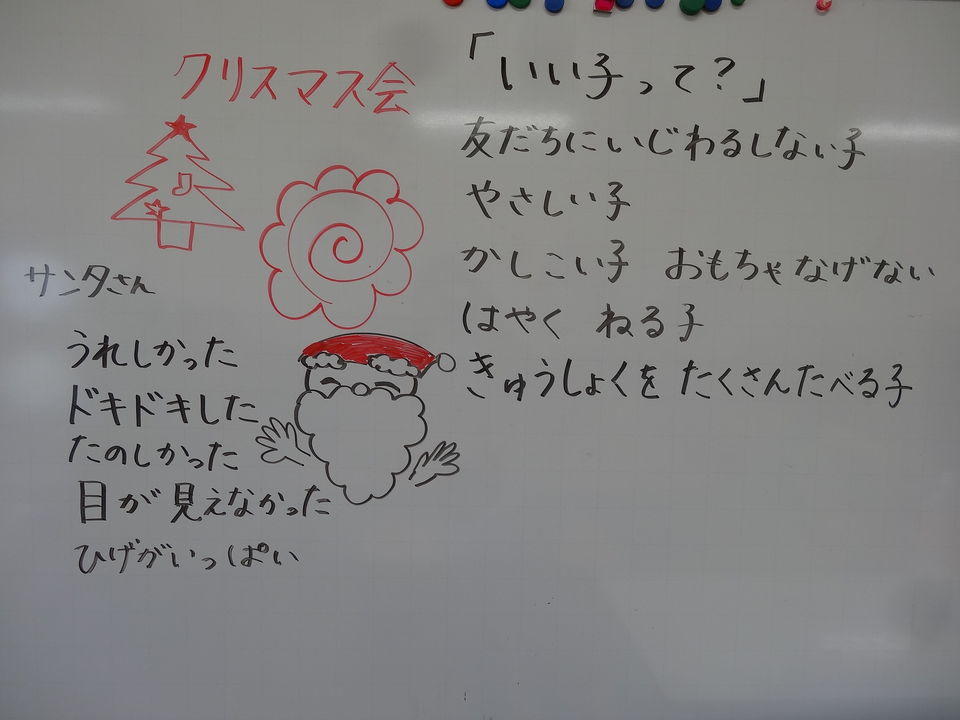 クリスマス会
サンタさん
うれしかった
ドキドキした
たのしかった
目が見えなかった
ひげがいっぱい
「いい子って？」
友だちにいじわるしない子
やさしい子
かしこい子 おもちゃなげない
はやく ねる子
きゅうしょくを たくさんたべる子